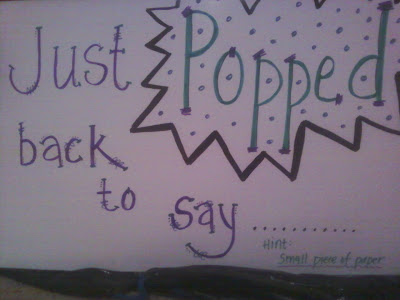 Just Popped
back
to say ............
Hint:
Small piece of paper